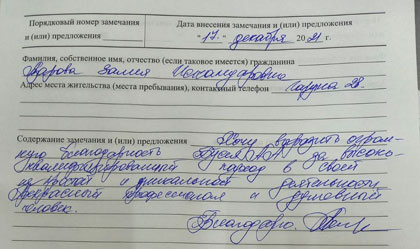 Порядковый номер замечания
и (или) предложения
Дата внесения замечания и (или) предложения
"17" декабря 2021 г.
Фамилия, собственное имя, отчество (если таковое имеется) гражданина
Искандаровна
Адрес места жительства (места пребывания), контактный телефон
Содержание замечания и (или) предложения Хочу выразить огром-
ную благодарность за высоко-
квалифицированный подход в своей
и уникальной деятельности
Прекрасный профессионал и душевный
человек.
Благодарю.